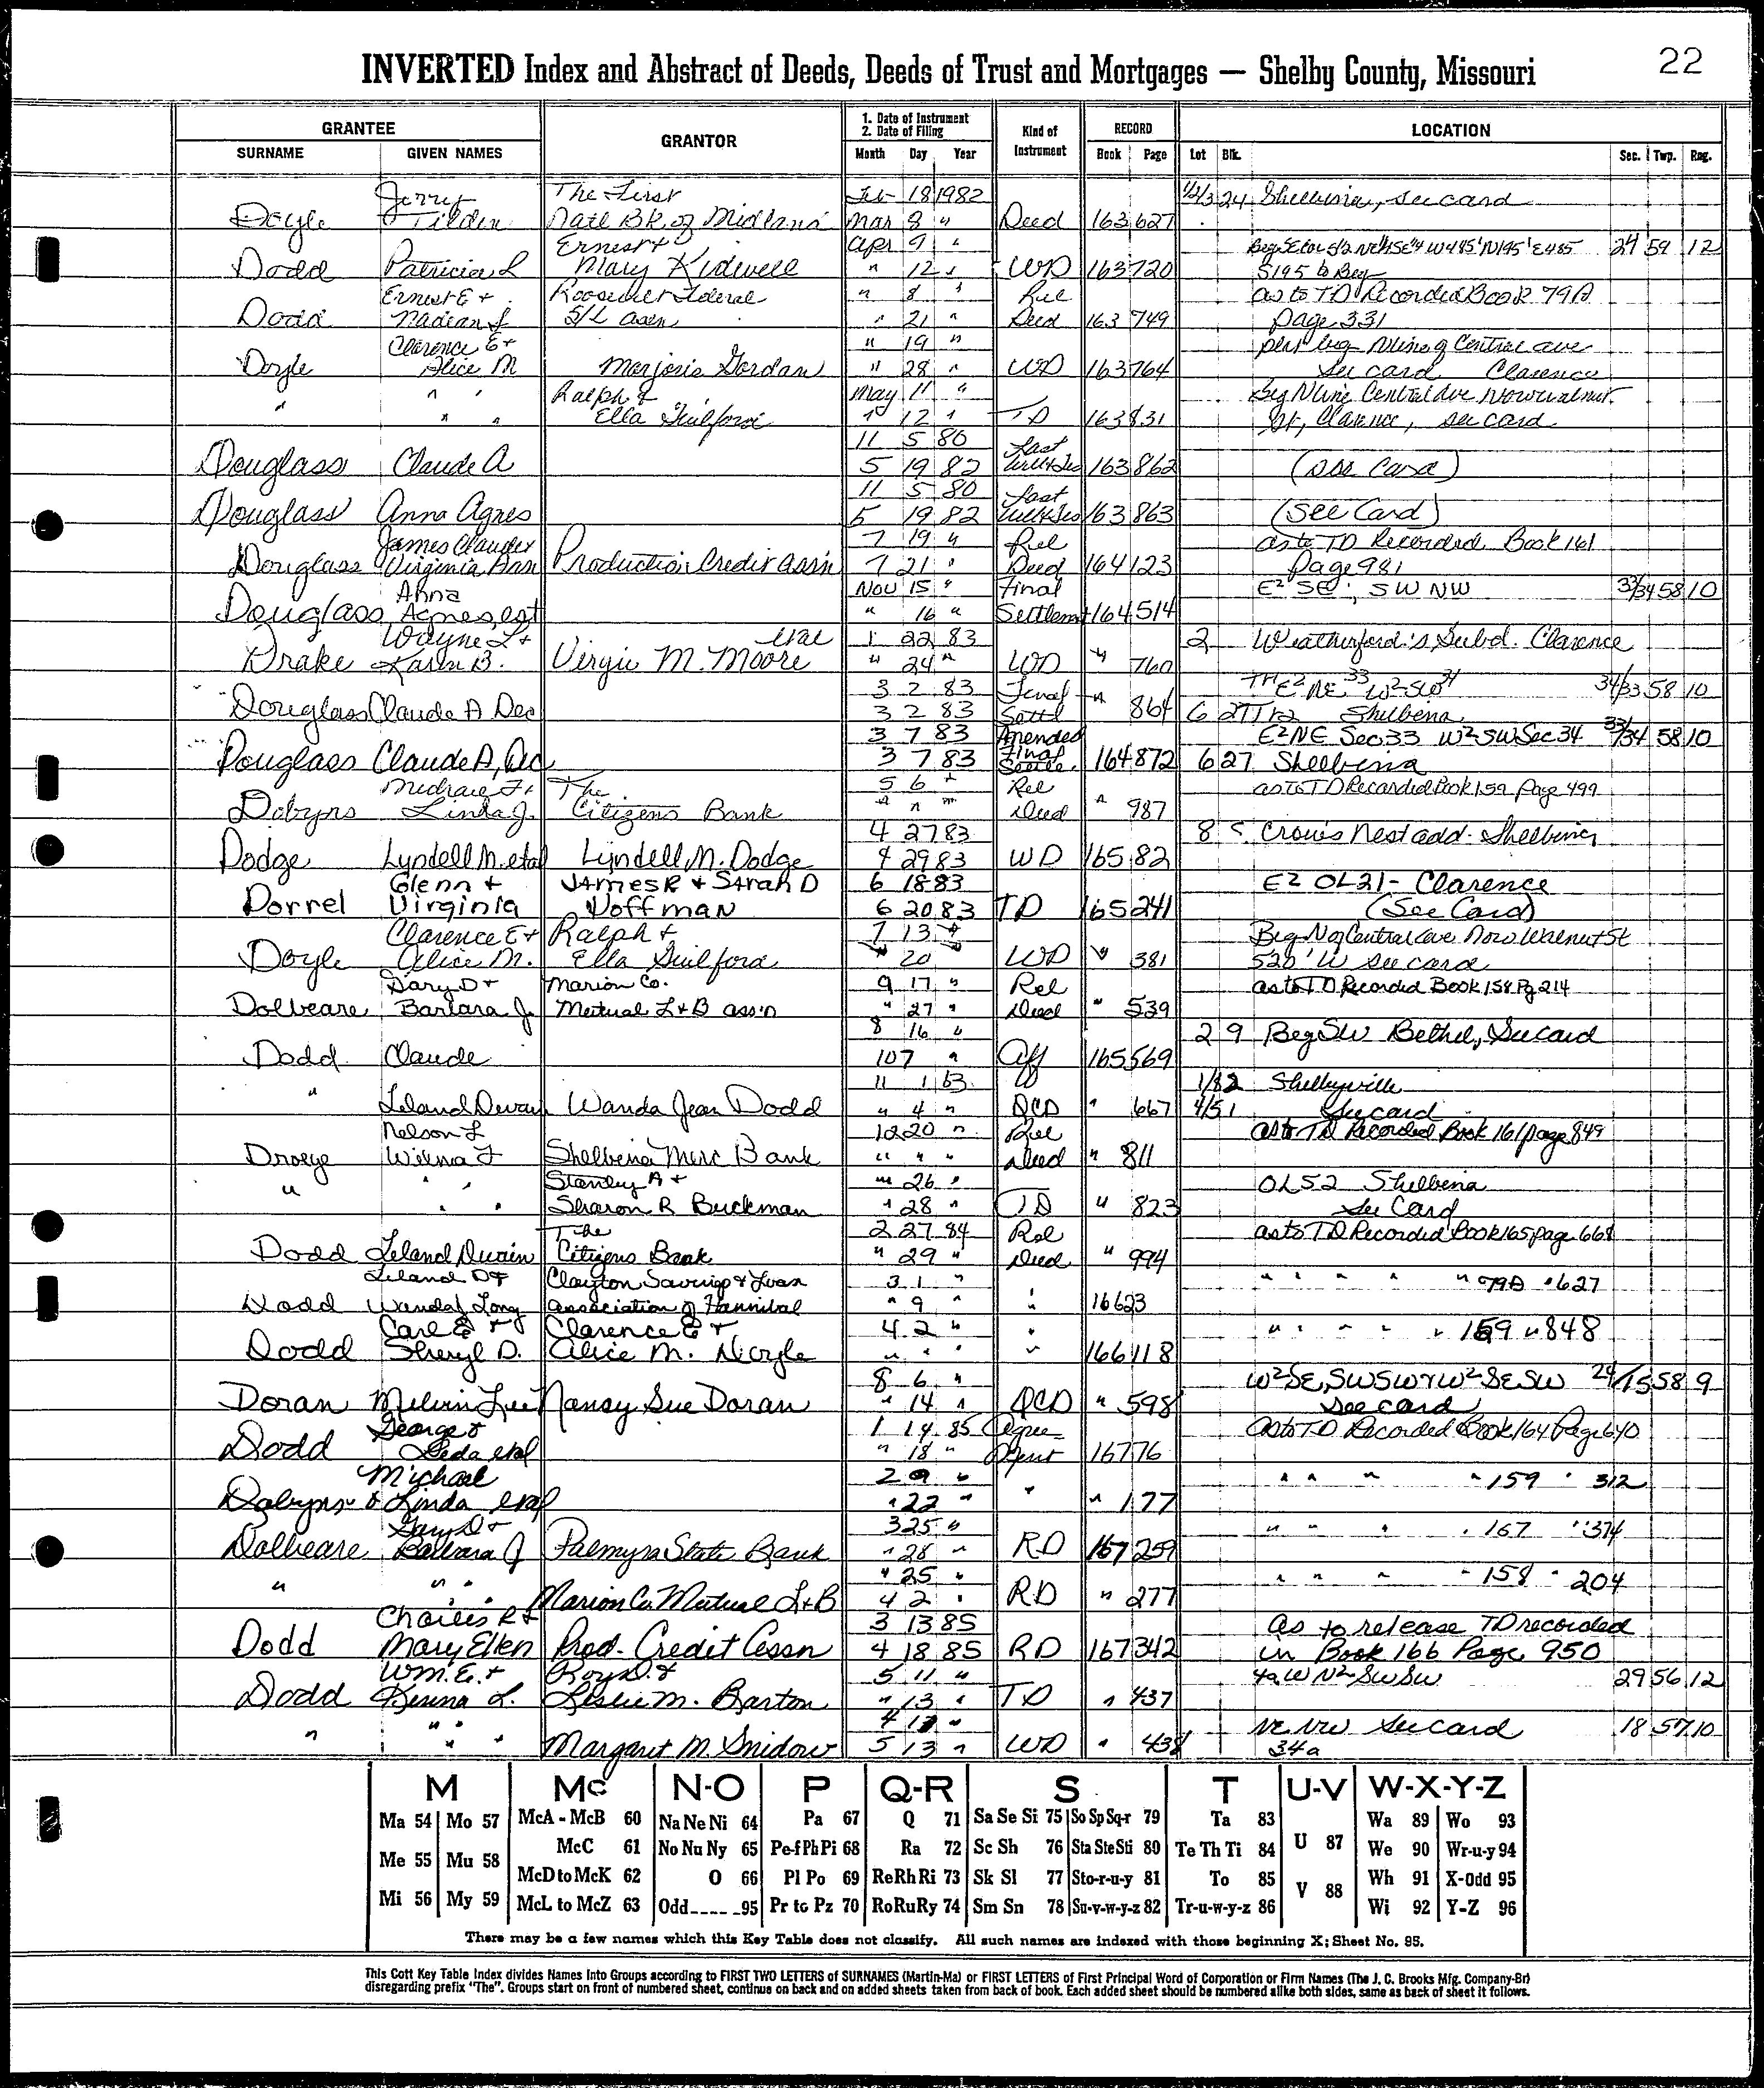 22
INVERTED Index and Abstract of Deeds, Deeds of Trust and Mortgages — Shelby County, Missouri
GRANTEE GRANTOR 1. Date of Instrument 2. Date of Filing Kind of Instrument RECORD LOCATION
SURNAME GIVEN NAMES Month Day Year Book Page Lot Blk. Sec. Twp. Rng.
Jerry The First Feb 18 1982 Shelbina, see card
Doyle Tilden Natl Bk. of Midland Mar 8 " Deed 163 627
Ernest & Apr 9 " 24 59 12
Dodd Patricia L Mary Kidwell " 12 " WD 163 720 S195 to Beg
Ernest E + Roosevelt Federal " 8 " Rel as to TD Recorded Book 79A
Dodd S/L assn " 21 " Deed 163 749 page 331
Clarence E + " 19 " beg N line of Central ave
Doyle Alice M Marjorie Gordan " 28 " WD 163 764 see card Clarence
" " " Ralph & May 11 " Beg N line Central Ave Now Walnut
" " Ella Guilford " 12 " TD 163 831 St, Clarence, see card
11 5 80 Last
Douglass Claude A 5 19 82 Will & Tes 163 862 (see Card)
11 5 80 Last
Douglass Anna Agnes 5 19 82 Will & Tes 163 863 (See Card)
James Claude + 7 19 " Rel as to TD Recorded Book 161
Douglass Virginia Ann Production Credit Ass'n 7 21 " Deed 164 123 Page 981
Anna Nov 15 " Final E² SE ; SW NW 33/34 58 10
Douglass Agnes, est " 16 " Settlemt 164 514
Wayne L + etal 1 22 83 2 Weatherford's Subd. Clarence
Drake Karen B. Virgie M. Moore " 24 " WD " 760
3 2 83 Final E² NE 33 W² SW 34 34/33 58 10
Douglass Claude A Dec 3 2 83 Settl " 864 6 27 Shelbina
3 7 83 Amended E² NE Sec 33 W² SW Sec 34 33/34 58 10
Douglass Claude A, Dec 3 7 83 Final Settle. 164 872 6 27 Shelbina
Michael F + The 5 6 " Rel as to TD Recorded Book 159 page 499
Dobyns Linda J. Citizens Bank " " " Deed " 987
4 27 83 8 5 Crow's Nest add. Shelbina
Dodge Lyndell M. etal Lyndell M. Dodge 4 29 83 WD 165 82
Glenn + James R + Sarah D 6 18 83 E² OL21 - Clarence
Dorrel Virginia Hoffman 6 20 83 TD 165 241 (See Card)
Clarence E + Ralph + 7 13 " Beg N of Central ave Now Walnut St
Doyle Alice M. Ella Guilford " 20 WD " 381 520' W see card
Gary D + Marion Co. 9 17 " Rel as to TD Recorded Book 158 Pg 214
Dolbeare Barbara J. Mutual L+B ass'n " 27 " Deed " 539
8 16 " 2 9 Beg SW Bethel, See card
Dodd Claude 10 7 " Aff 165 569
11 1 83 1/82 Shelbyville
" Leland Dwain Wanda Jean Dodd " 4 " QCD " 667 4/51 See card
Nelson L 12 20 " Rel as to TD Recorded Book 161 page 849
Droege Wilma F Shelbina Merc Bank " " " Deed " 811
" " " Stanley A + " 26 " OL52 Shelbina
" " Sharon R Buckman " 28 " TD " 823 See Card
The 2 27 84 Rel as to TD Recorded Book 165 page 668
Dodd Leland Dwain Citizens Bank " 29 " Deed " 994
Leland D + Clayton Savings & Loan 3 1 " " " " " " 79A " 627
Dodd Wanda J Long Association of Hannibal " 9 " " 166 23
Carl E + Clarence E + 4 2 " " " " " " 159 " 848
Dodd Sheryl D. Alice M. Doyle " " " " 166 118
8 6 " W² SE, SW SW & W² SE SW 58 9
Doran Melvin Lee Nancy Sue Doran " 14 " QCD " 598 See card
George & 1 14 85 as to TD Recorded Book 164 Page 640
Dodd Leda etal " 18 " 167 76
Michael 2 9 " " " " " 159 " 312
Dobyns & Linda etal " 22 " " " 177
Gary D + 3 25 " " " " " 167 " 374
Dolbeare Barbara J Palmyra State Bank " 28 " RD 167 259
" " " " 25 " " " " " 158 " 204
Marion Co. Mutual L+B 4 2 " RD " 277
Charles R + 3 13 85 as to release TD recorded
Dodd Mary Ellen Prod. Credit Assn 4 18 85 RD 167 342 in Book 166 Page 950
Wm. E. + Roy D. & 5 11 " 4a W N² SW SW 29 56 12
Dodd Leslie M. Barton " 13 " TD " 437
" " " 4 12 " NE NW See card 18 57 10
" " Margaret M. Snidow 5 13 " WD " 438 34a
M Mc N-O P Q-R S T U-V W-X-Y-Z
Ma 54 Mo 57 McA - McB 60 Na Ne Ni 64 Pa 67 Q 71 Sa Se Si 75 So Sp Sq-r 79 Ta 83 Wa 89 Wo 93
Me 55 Mu 58 McC 61 No Nu Ny 65 Pe-f Ph Pi 68 Ra 72 Sc Sh 76 Sta Ste Sti 80 Te Th Ti 84 U 87 We 90 Wr-u-y 94
McD to McK 62 O 66 Pl Po 69 Re Rh Ri 73 Sk Sl 77 Sto-r-u-y 81 To 85 V 88 Wh 91 X-Odd 95
Mi 56 My 59 McL to McZ 63 Odd 95 Pr to Pz 70 Ro Ru Ry 74 Sm Sn 78 Su-v-w-y-z 82 Tr-u-w-y-z 86 Wi 92 Y-Z 96
There may be a few names which this Key Table does not classify. All such names are indexed with those beginning X; Sheet No. 95.
This Cott Key Table Index divides Names Into Groups according to FIRST TWO LETTERS of SURNAMES (Martin-Ma) or FIRST LETTERS of First Principal Word of Corporation or Firm Names (The J. C. Brooks Mfg. Company-Br)
disregarding prefix "The". Groups start on front of numbered sheet, continue on back and on added sheets taken from back of book. Each added sheet should be numbered alike both sides, same as back of sheet it follows.